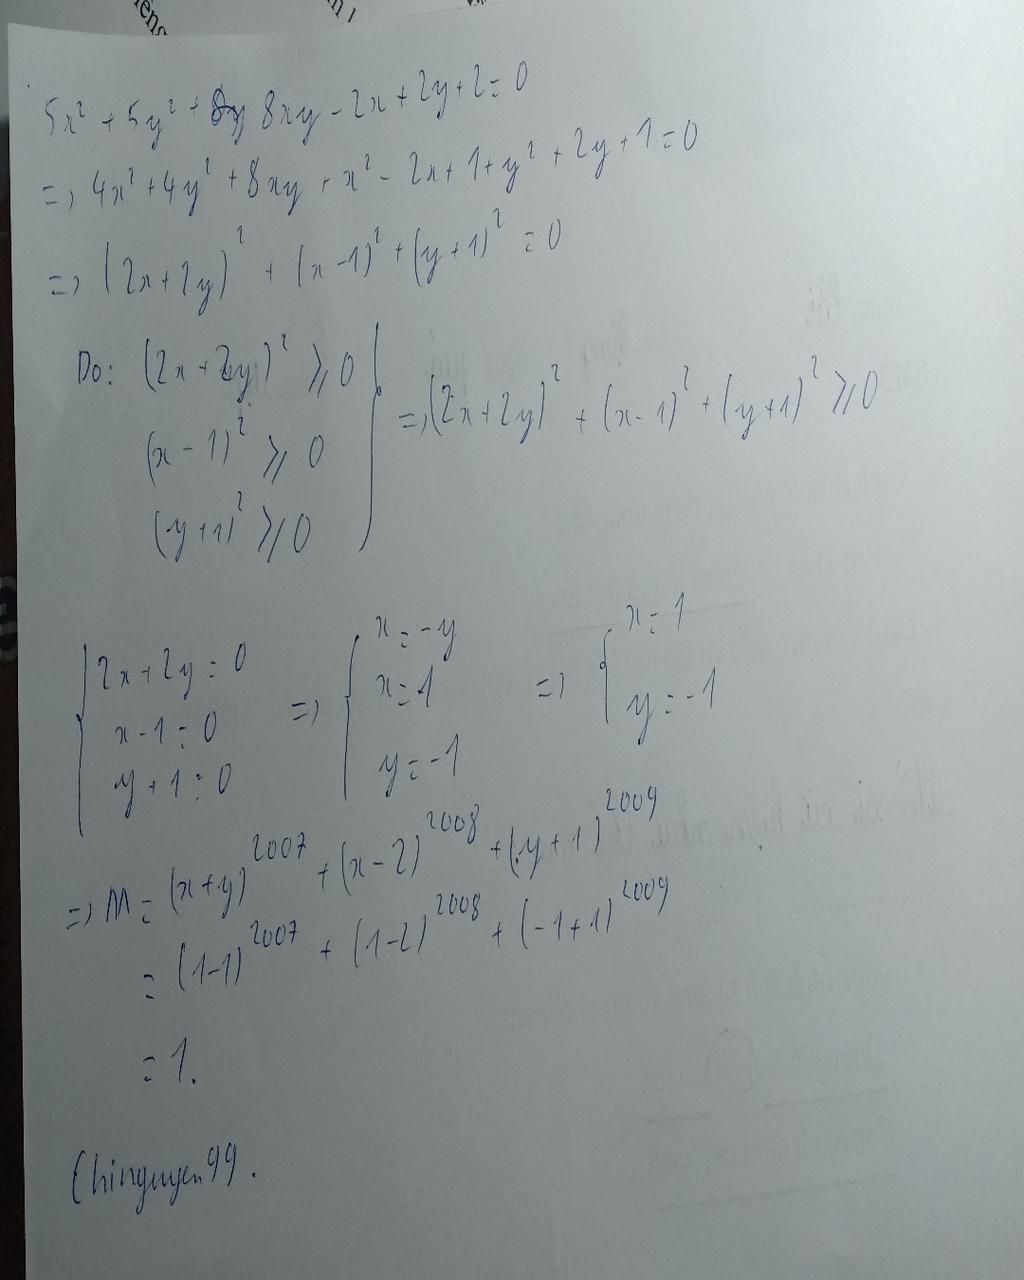 5x² + 5y² + 8xy - 2x + 2y + 2 = 0
=> 4x² + 4y² + 8xy + x² - 2x + 1 + y² + 2y + 1 = 0
=> (2x + 2y)² + (x - 1)² + (y + 1)² = 0
Do: (2x + 2y)² ⩾ 0
=> (2x + 2y)² + (x - 1)² + (y + 1)² ⩾ 0
(x - 1)² ⩾ 0
(y + 1)² ⩾ 0
{ 2x + 2y = 0
x - 1 = 0
y + 1 = 0
=> { x = -y
x = 1
y = -1
=> { x = 1
y = -1
=> M = (x + y)²⁰⁰⁷ + (x - 2)²⁰⁰⁸ + (y + 1)²⁰⁰⁹
= (1 - 1)²⁰⁰⁷ + (1 - 2)²⁰⁰⁸ + (-1 + 1)²⁰⁰⁹
= 1.
Chinguyen99.